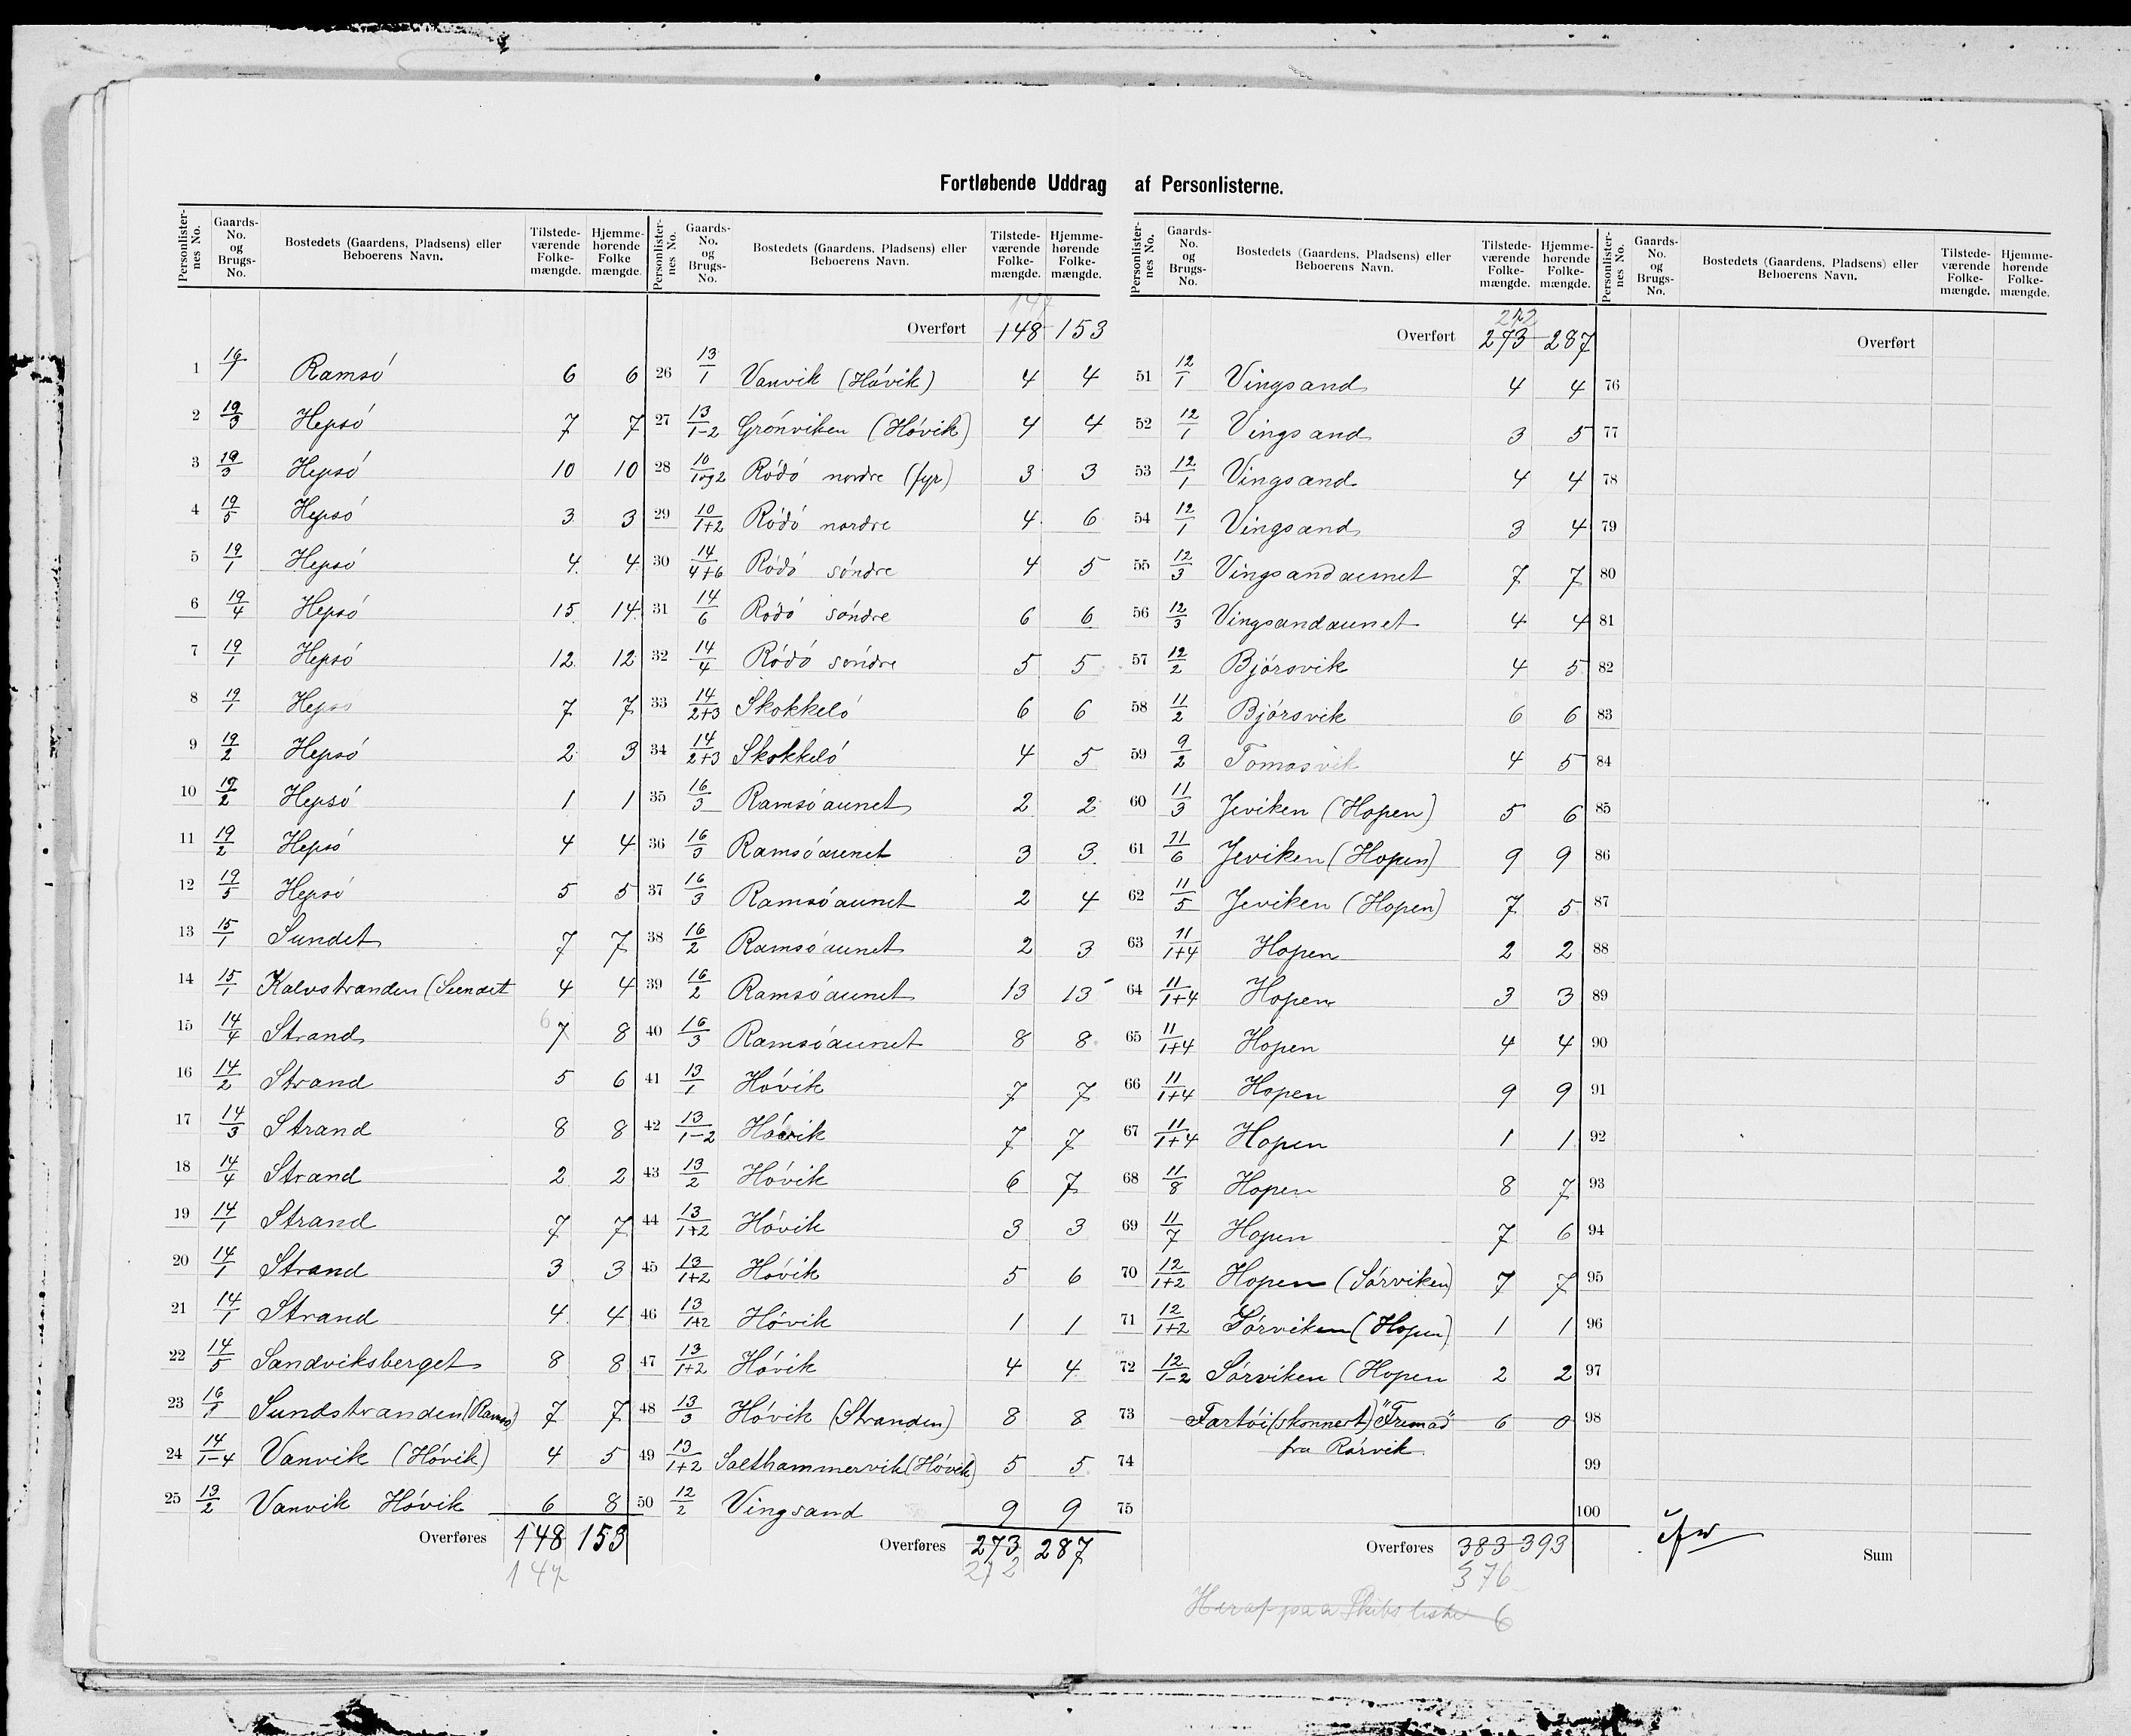 Fortløbende Uddrag af Personlisterne.
Personlisternes No. Gaards-No. og Brugs-No. Bostedets (Gaardens, Pladsens) eller Beboerens Navn. Tilstedeværende Folkemængde. Hjemmehørende Folkemængde.
1 16/1 Ramsó 6 6
2 19/3 Hepsó 7 7
3 19/3 Hepsó 10 10
4 19/5 Hepsó 3 3
5 19/1 Hepsó 4 4
6 19/4 Hepsó 15 14
7 19/1 Hepsó 12 12
8 19/1 Hepsó 7 7
9 19/2 Hepsó 2 3
10 19/2 Hepsó 1 1
11 19/2 Hepsó 4 4
12 19/5 Hepsó 5 5
13 15/1 Sundet 7 7
14 15/1 Kalvstranden (Sundet 4 4
15 14/4 Strand 6 7 8
16 14/2 Strand 5 6
17 14/3 Strand 8 8
18 14/4 Strand 2 2
19 14/1 Strand 7 7
20 14/1 Strand 3 3
21 14/1 Strand 4 4
22 14/5 Sandviksberget 8 8
23 16/1 Sundstranden (Ramsó) 7 7
24 14/1-4 Vanvik (Hóvik) 4 5
25 13/2 Vanvik Hóvik 6 8
Overføres 148 153
147
Personlisternes No. Gaards-No. og Brugs-No. Bostedets (Gaardens, Pladsens) eller Beboerens Navn. Tilstedeværende Folkemængde. Hjemmehørende Folkemængde.
147
Overført 148 153
26 13/1 Vanvik (Hóvik) 4 4
27 13/1-2 Grónviken (Hóvik) 4 4
28 10/1og2 Ródó nordre (fyr) 3 3
29 10/1+2 Ródó nordre 4 6
30 14/4+6 Ródó sóndre 4 5
31 14/6 Ródó sóndre 6 6
32 14/4 Ródó sóndre 5 5
33 14/2+3 Skokkeló 6 6
34 14/2+3 Skokkeló 4 5
35 16/3 Ramsóaunet 2 2
36 16/3 Ramsóaunet 3 3
37 16/3 Ramsóaunet 2 4
38 16/2 Ramsóaunet 2 3
39 16/2 Ramsóaunet 13 13
40 16/3 Ramsóaunet 8 8
41 13/1 Hóvik 7 7
42 13/1-2 Hóvik 7 7
43 13/2 Hóvik 6 7
44 13/1+2 Hóvik 3 3
45 13/1+2 Hóvik 5 6
46 13/1+2 Hóvik 1 1
47 13/1+2 Hóvik 4 4
48 13/3 Hóvik (Stranden) 8 8
49 13/1+2 Salthammervik (Hóvik) 5 5
50 12/2 Vingsand 9 9
Overføres 273 287
272
Personlisternes No. Gaards-No. og Brugs-No. Bostedets (Gaardens, Pladsens) eller Beboerens Navn. Tilstedeværende Folkemængde. Hjemmehørende Folkemængde.
272
Overført 273 287
51 12/1 Vingsand 4 4
52 12/1 Vingsand 3 5
53 12/1 Vingsand 4 4
54 12/1 Vingsand 3 4
55 12/3 Vingsandaunet 7 7
56 12/3 Vingsandaunet 4 4
57 12/2 Bjórsvik 4 5
58 11/2 Bjórsvik 6 6
59 9/2 Tomasvik 4 5
60 11/3 Jeviken (Hopen) 5 6
61 11/6 Jeviken (Hopen) 9 9
62 11/5 Jeviken (Hopen) 7 5
63 11/1+4 Hopen 2 2
64 11/1+4 Hopen 3 3
65 11/1+4 Hopen 4 4
66 11/1+4 Hopen 9 9
67 11/1+4 Hopen 1 1
68 11/8 Hopen 8 7
69 11/7 Hopen 7 6
70 12/1+2 Hopen (Sórviken) 7 7
71 12/1+2 Sórviken (Hopen) 1 1
72 12/1-2 Sórviken (Hopen 2 2
73 Fartói (skonnert) "Fremad" 6 0
fra Rórvik
74
75
Overføres 383 393
376
Heraf paa Skibsliste 6
Personlisternes No. Gaards-No. og Brugs-No. Bostedets (Gaardens, Pladsens) eller Beboerens Navn. Tilstedeværende Folkemængde. Hjemmehørende Folkemængde.
Overført
76
77
78
79
80
81
82
83
84
85
86
87
88
89
90
91
92
93
94
95
96
97
98
99
100
Sum